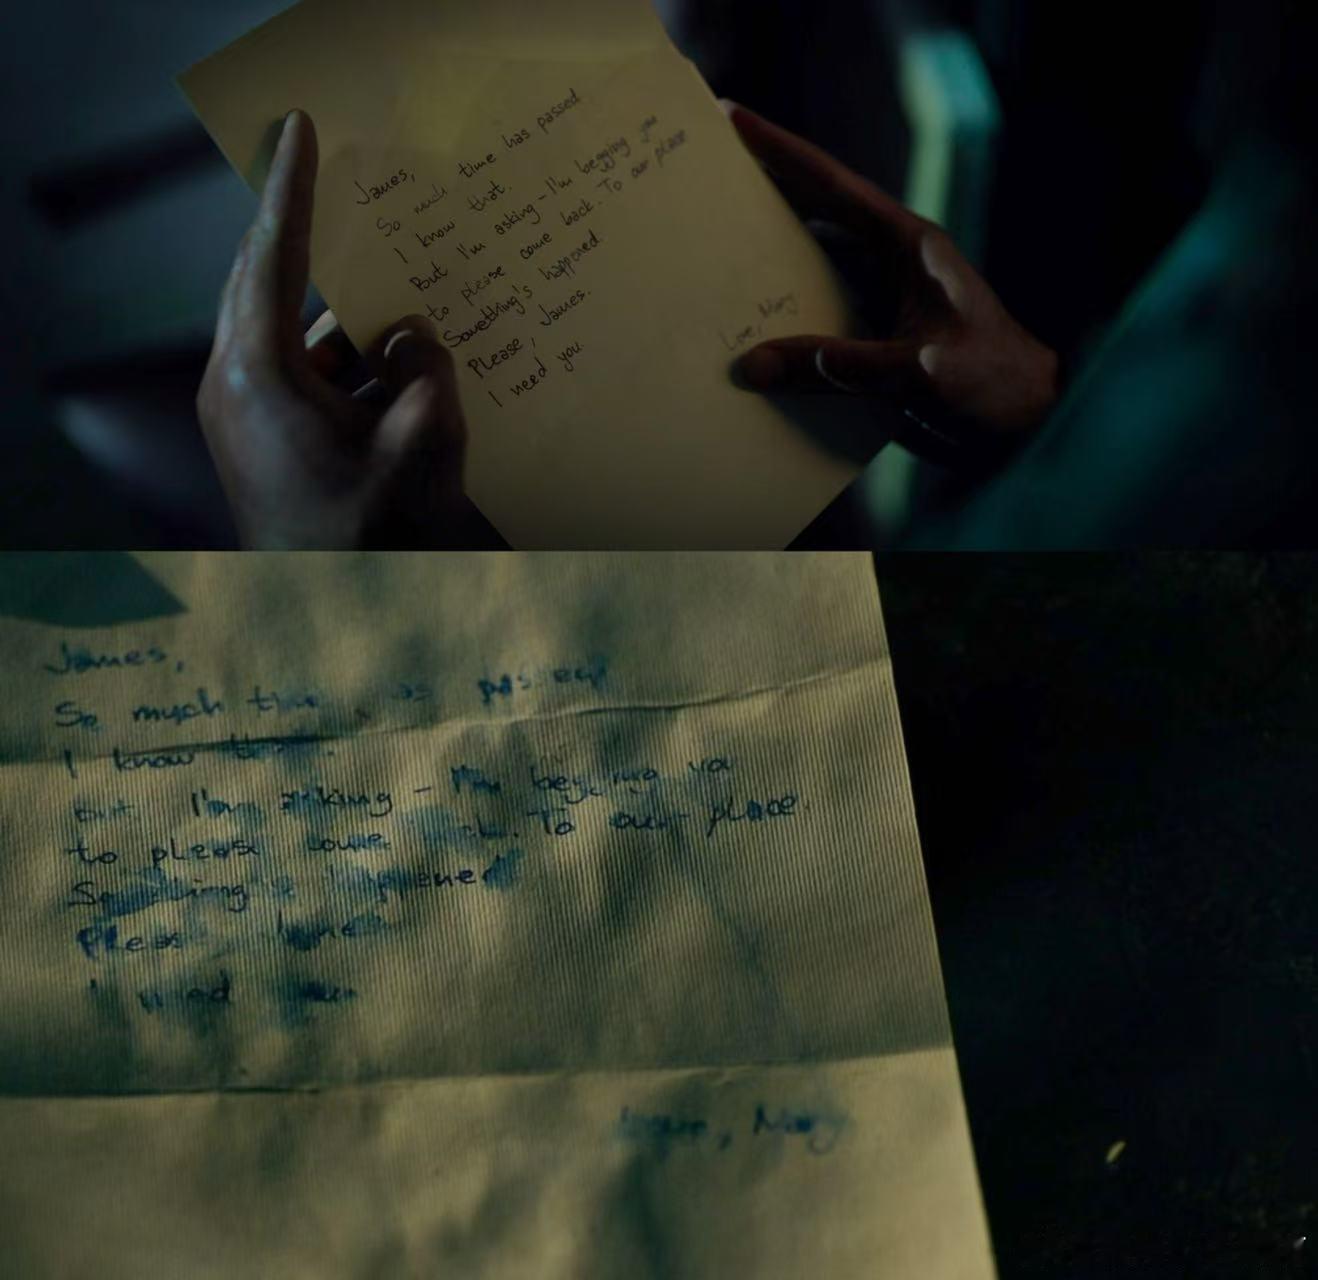 James,
So much time has passed
I know that.
But I'm asking - I'm begging you
to please come back. To our place
Something's happened.
Please, James.
I need you.
Love, Mary
James,
So much time as passed
I know that.
but I'm asking - I'm begging you
to please come back. To our place.
Something's happened
Please, James
I need you
Love, Mary